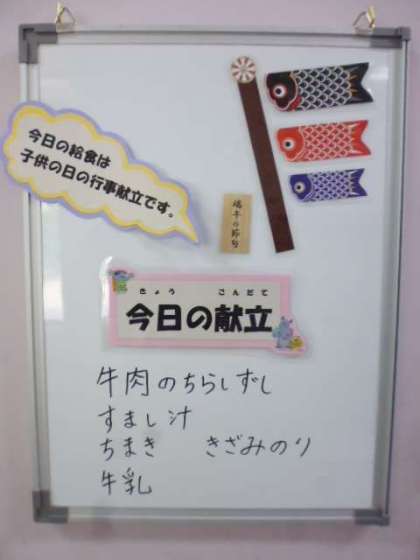 今日の給食は
子供の日の行事献立です。
端午の節句
きょう　こんだて
今日の献立
牛肉のちらしずし
すまし汁
ちまき　きざみのり
牛乳